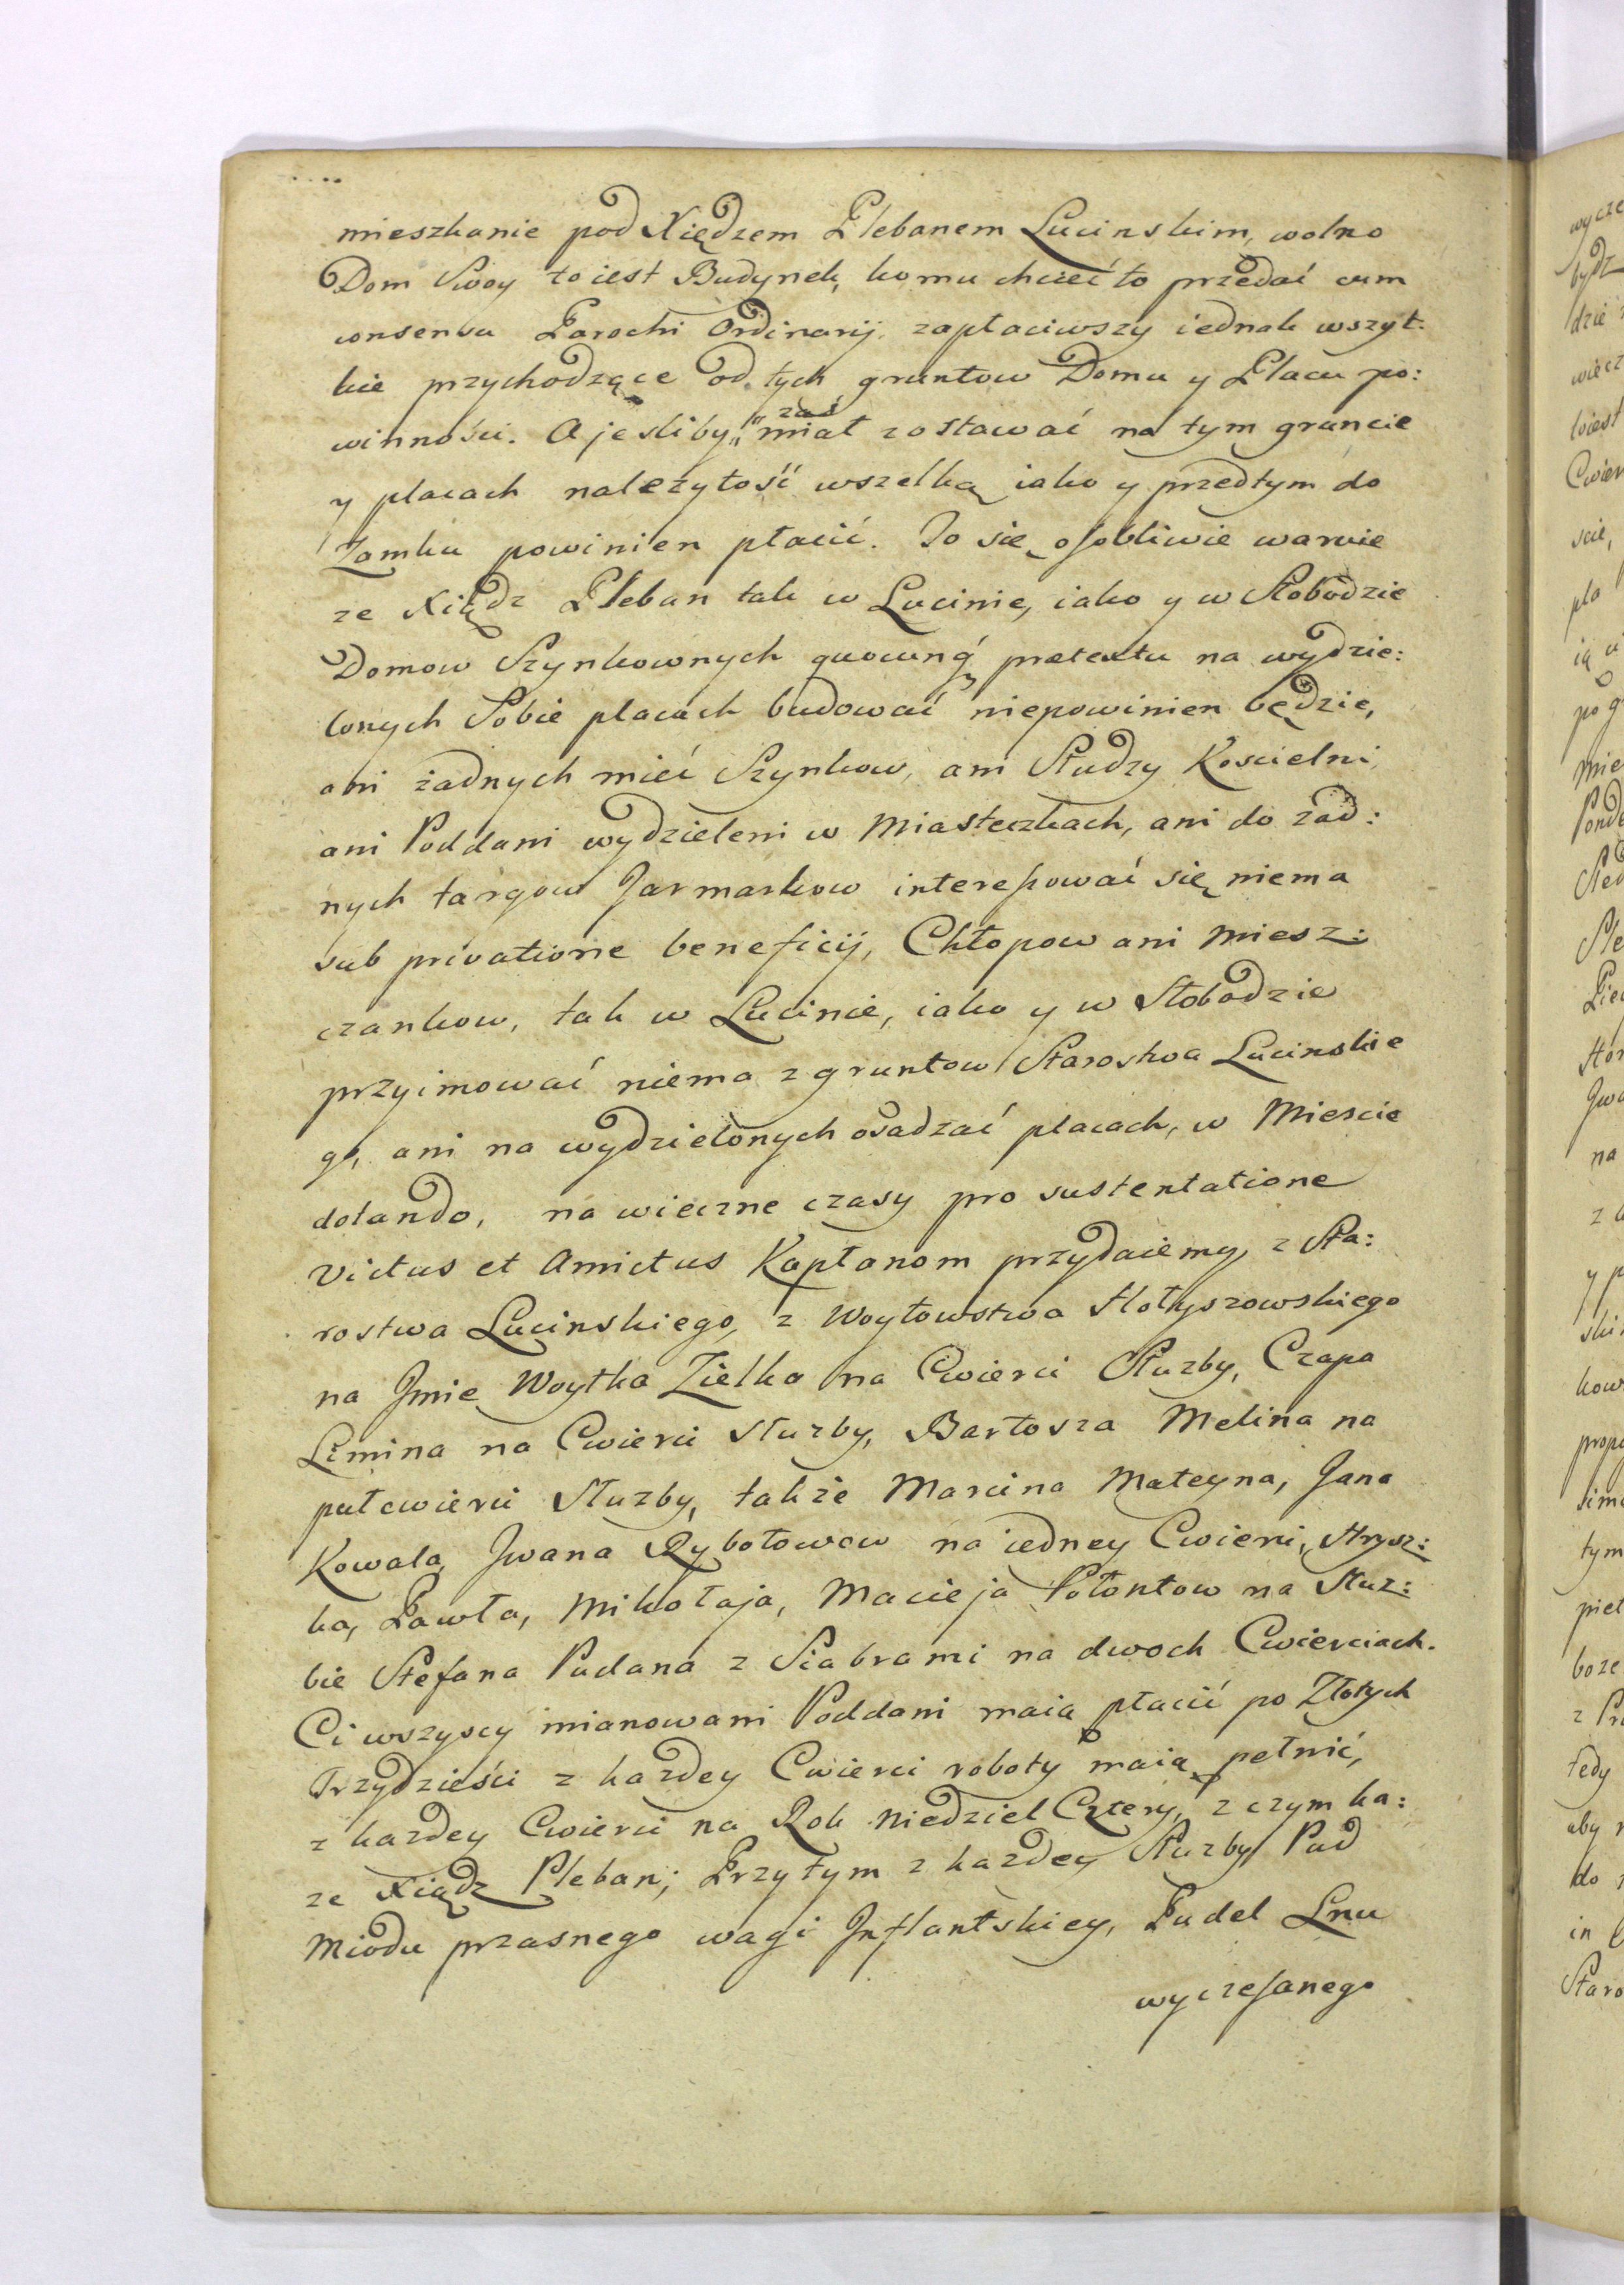 mieszkanie pod Xiędzem Plebanem Lucinskim, wolno
Dom Swoy to iest Budynek, komu chcieć to przedać cum
consensu Parochi Ordinarij. zapłaciwszy iednak wszyt:
kie przychodzące od tych gruntow Domu y Placu po:
winności. A jesliby zaś miał zostawać na tym gruncie
y placach należytość wszelką iako y przedtym do
Zamku powinien płacić. To się osobliwie waruie
ze Xiądz Pleban tak w Lucinie, iako y w Słobodzie
Domow Szynkownych quocunq́ pretextu na wydzie:
lonych Sobie placach budować niepowinien będzie,
ani żadnych mieć Szynkow, ani Słudzy Koscielni
ani Poddani wydzieleni w Miasteczkach, ani do zad:
nych targow Jarmarkow interessować się niema
sub privatione beneficij, Chłopow ani Miesz:
czankow, tak w Lucinie, iako y w Słobodzie
przyimować niema z gruntow Starostwa Lucinskie
go, ani na wydzielonych osadzać placach, w Miescie
dotando, na wieczne czasy pro sustentatione
Victus et Amictus Kapłanom przydaiemy, z Sta:
rostwa Lucinskiego, z Woytowstwa Hołyszowskiego
na Jmie Woytka Zielka na Cwierci Służby, Czapa
Lemina na Cwierci Służby, Bartosza Melina na
pułcwierci Służby, także Marcina Mateyna, Jana
Kowala, Jwana Rybołowow na iedney Cwierci, Hrysz:
ka, Pawła, Mikołaja, Macieja Połontow na Służ:
bie Stefana Pudana z Siabrami na dwoch Cwierciach.
Ci wszyscy mianowani Poddani maią płacić po Złotych
Trzydzieści z kazdey Cwierci roboty maią pełnić,
z kazdey Cwierci na Rok Niedziel Cztery, z czym ka:
ze Xiądz Pleban; Przytym z kazdey Służby Pud
Miodu przasnego wagi Jnflantskiey, Pudel Lnu
wyczesanego